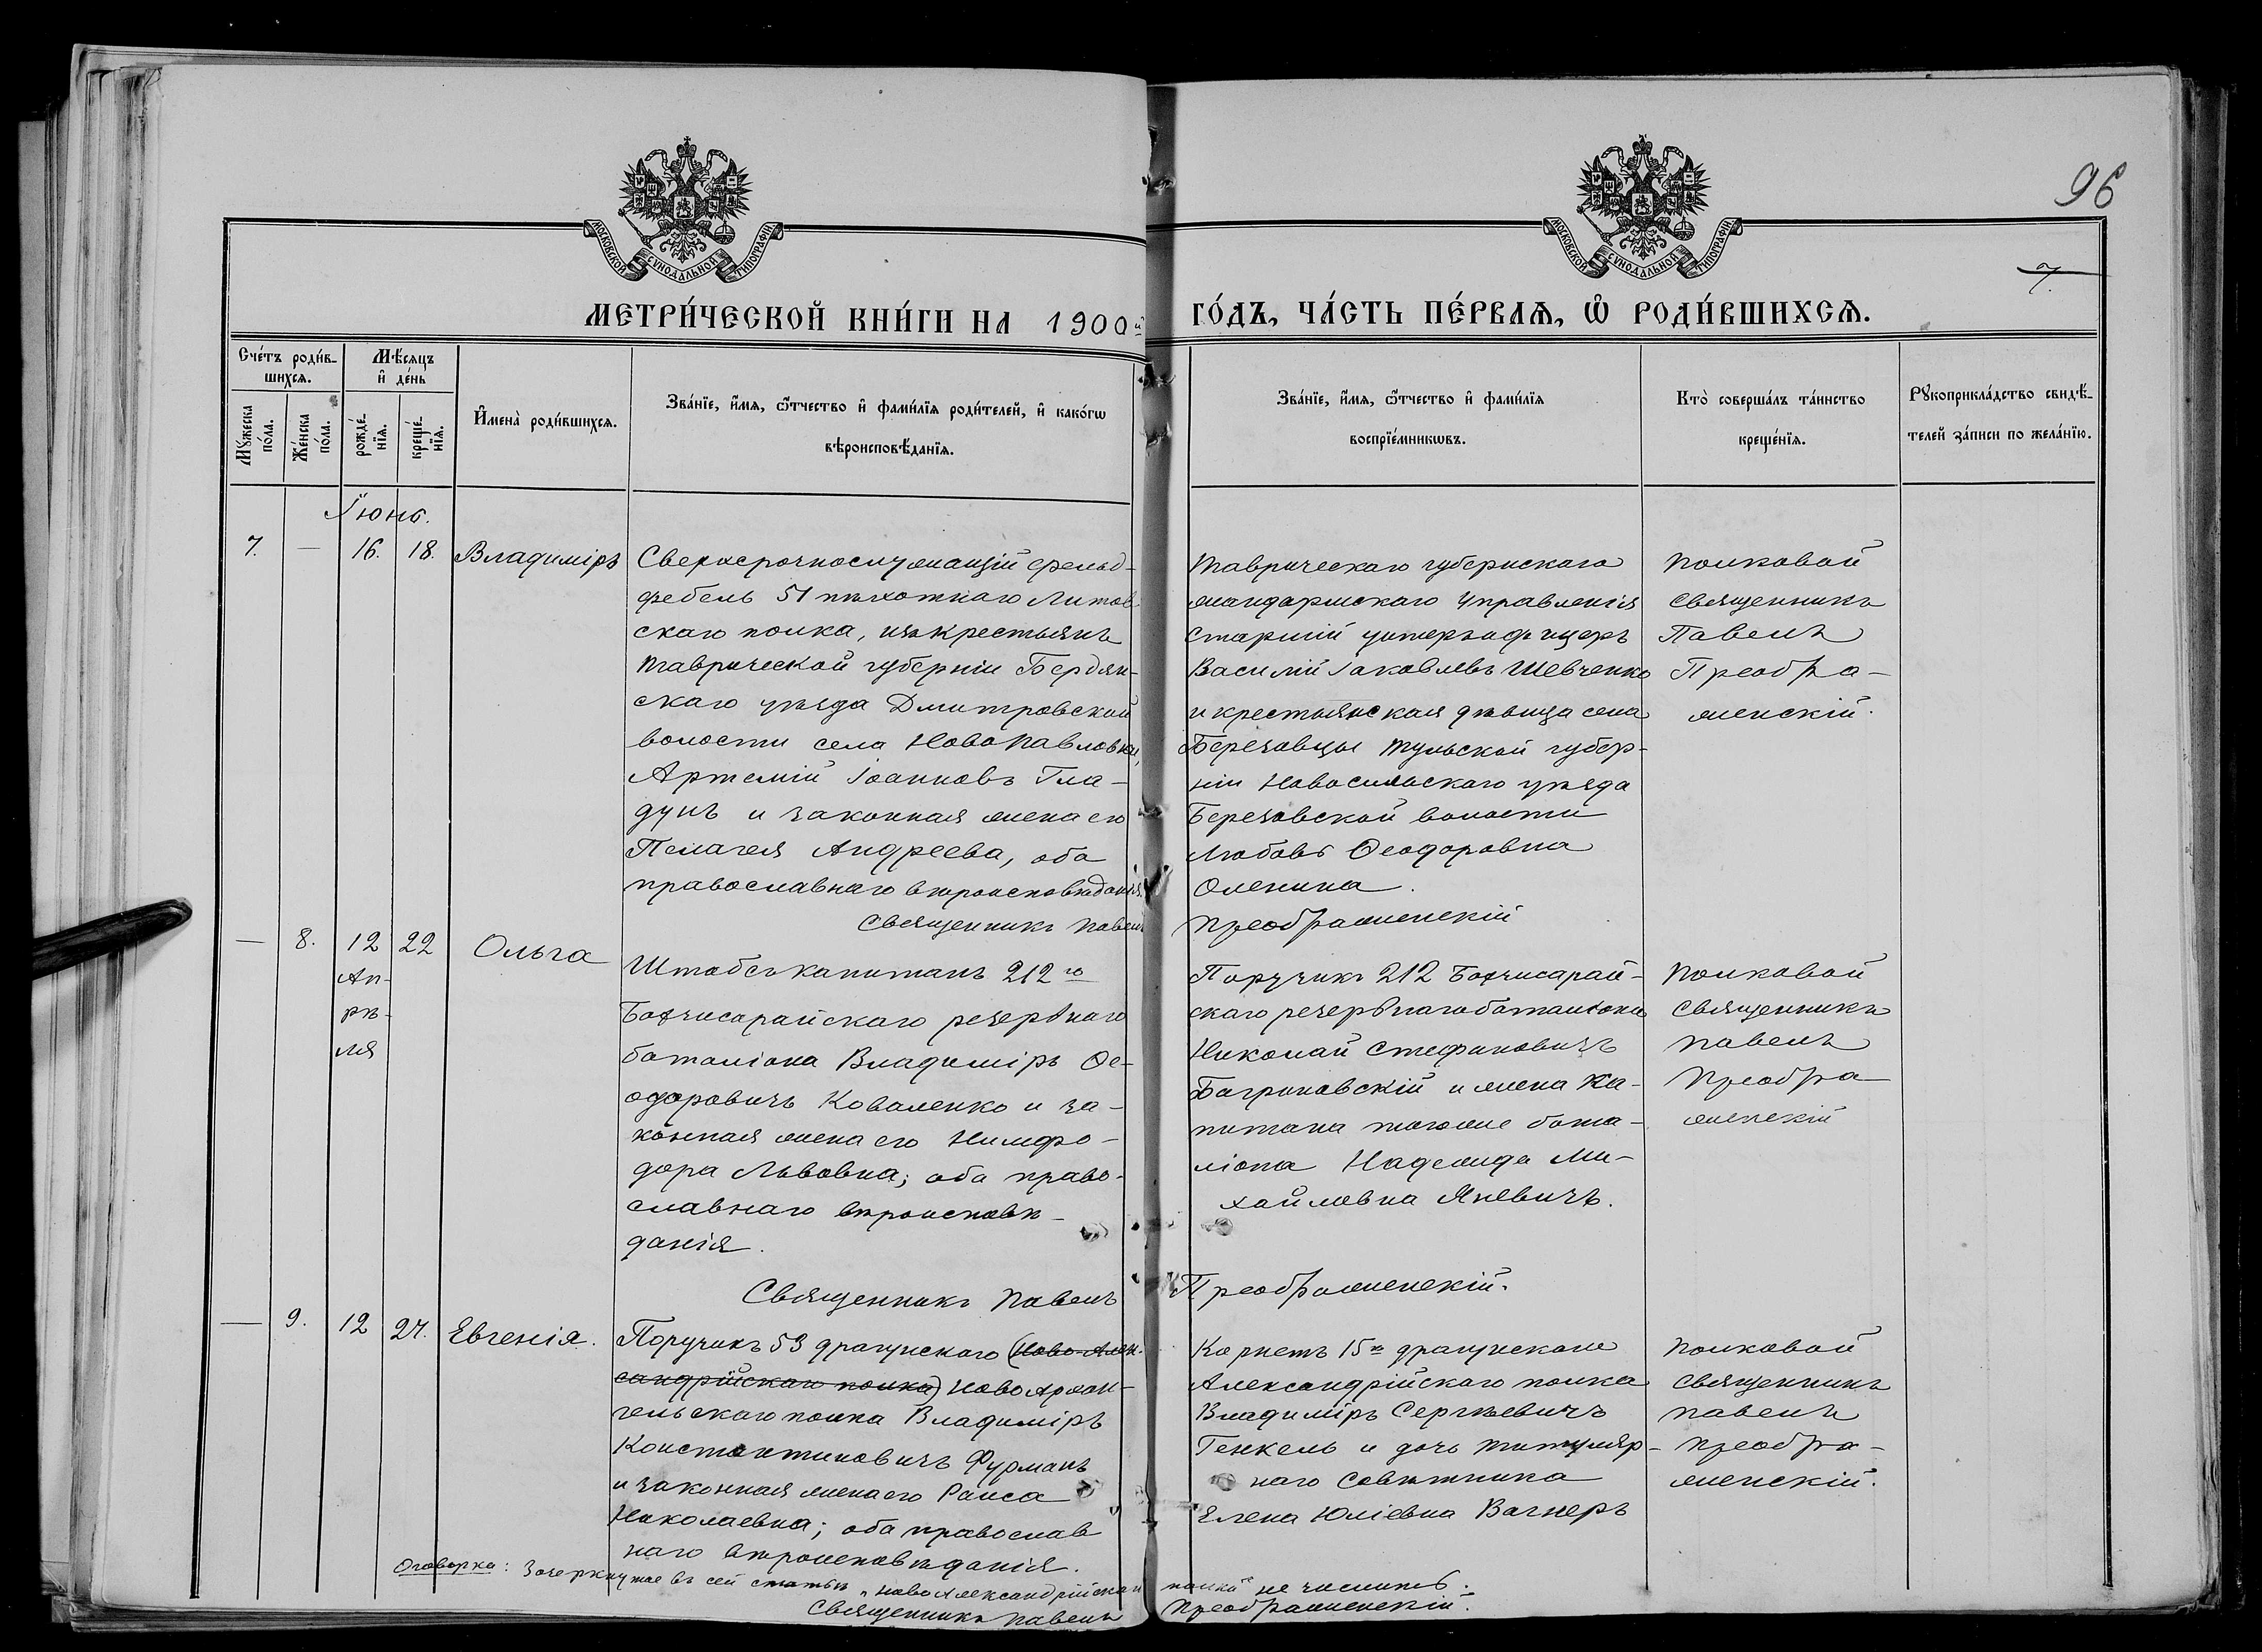 96
МОСКОВСКОЙ СУНОДАЛЬНОЙ ТИПОГРАФІИ
МОСКОВСКОЙ СУНОДАЛЬНОЙ ТИПОГРАФІИ
7.
МЕТРИ́ЧЕСКОЙ КНИ́ГИ НА 1900й
ГО́ДЪ, ЧА́СТЬ ПЕ́РВАѦ, Ѽ РОДИ́ВШИХСѦ.
Сче́тъ роди́в-
шихсѧ.
Мѣ́сяцъ
и҆ де́нь
Мꙋжеска по́ла.
Же́нска по́ла.
рожде́-
нїѧ.
креще́-
нїѧ.
И҆мена̀ роди́вшихсѧ.
Зва́нїе, и҆́мѧ, ѻ҆́тчество и҆ фами́лїѧ роди́телей, и҆ како́гѡ
вѣроисповѣ́данїѧ.
Зва́нїе, и҆́мѧ, ѻ҆́тчество и҆ фами́лїѧ
воспрїе́мникѡвъ.
Кто̀ соверша́лъ та́инство
креще́нїѧ.
Рꙋкоприкла́дство свидѣ́-
телей за́писи по жела́нїю.
Іюнь.
7. — 16. 18. Владиміръ
Сверхсрочнослужащій фельд-
фебель 51 пѣхотнаго Литов
скаго полка, изъ крестьянъ
Таврической губерніи Бердян-
скаго уѣзда Дмитровской
волости села Новопавловки,
Артемій Іоанновъ Гла-
дунъ и законная жена его
Пелагея Андреева, оба
православнаго вѣроисповѣданія.
Таврическаго губернскаго
жандармскаго управленія
старшій унтеръ офицеръ
Василій Іаковлевъ Шевченко
и крестьянская дѣвица села
Березовцы Тульской губер-
ніи Новосильскаго уѣзда
Березовской волости
Любовь Ѳеодоровна
Оленина.
Полковой
священникъ
Павелъ
Преобра-
женскій.
Священникъ Павелъ Преображенскій
— 8. 12 22 Ольга
Ап-
рѣ-
ля
Штабсъ капитанъ 212го
Бахчисарайскаго резервнаго
баталіона Владиміръ Ѳе-
одоровичъ Коваленко и за-
конная жена его Нимфо-
дора Львовна; оба право-
славнаго вѣроисповѣ-
данія.
Поручикъ 212 Бахчисарай-
скаго резервнаго баталіона
Николай Стефановичъ
Багриновскій и жена ка-
питана тогоже бата-
ліона Надежда Ми-
хайловна Яневичъ.
Полковой
священникъ
Павелъ
Преобра
женскій
Священникъ Павелъ Преображенскій.
— 9. 12 27. Евгенія.
Поручикъ 53 драгунскаго (Ново-Алек-
сандрійскаго полка) Новоархан-
гельскаго полка Владиміръ
Константиновичъ Фурманъ
и законная жена его Раиса
Николаевна; оба православ
наго вѣроисповѣданія.
Корнетъ 15го драгунскаго
Александрійскаго полка
Владиміръ Сергѣевичъ
Генкель и дочь титуляр-
наго совѣтника
Елена Юліевна Вагнеръ
Полковой
священникъ
Павелъ
Преобра-
женскій.
Оговорка: Зачеркнутое въ сей статьѣ „Новоалександрійскаго полка" не числить.
Священникъ Павелъ Преображенскій.